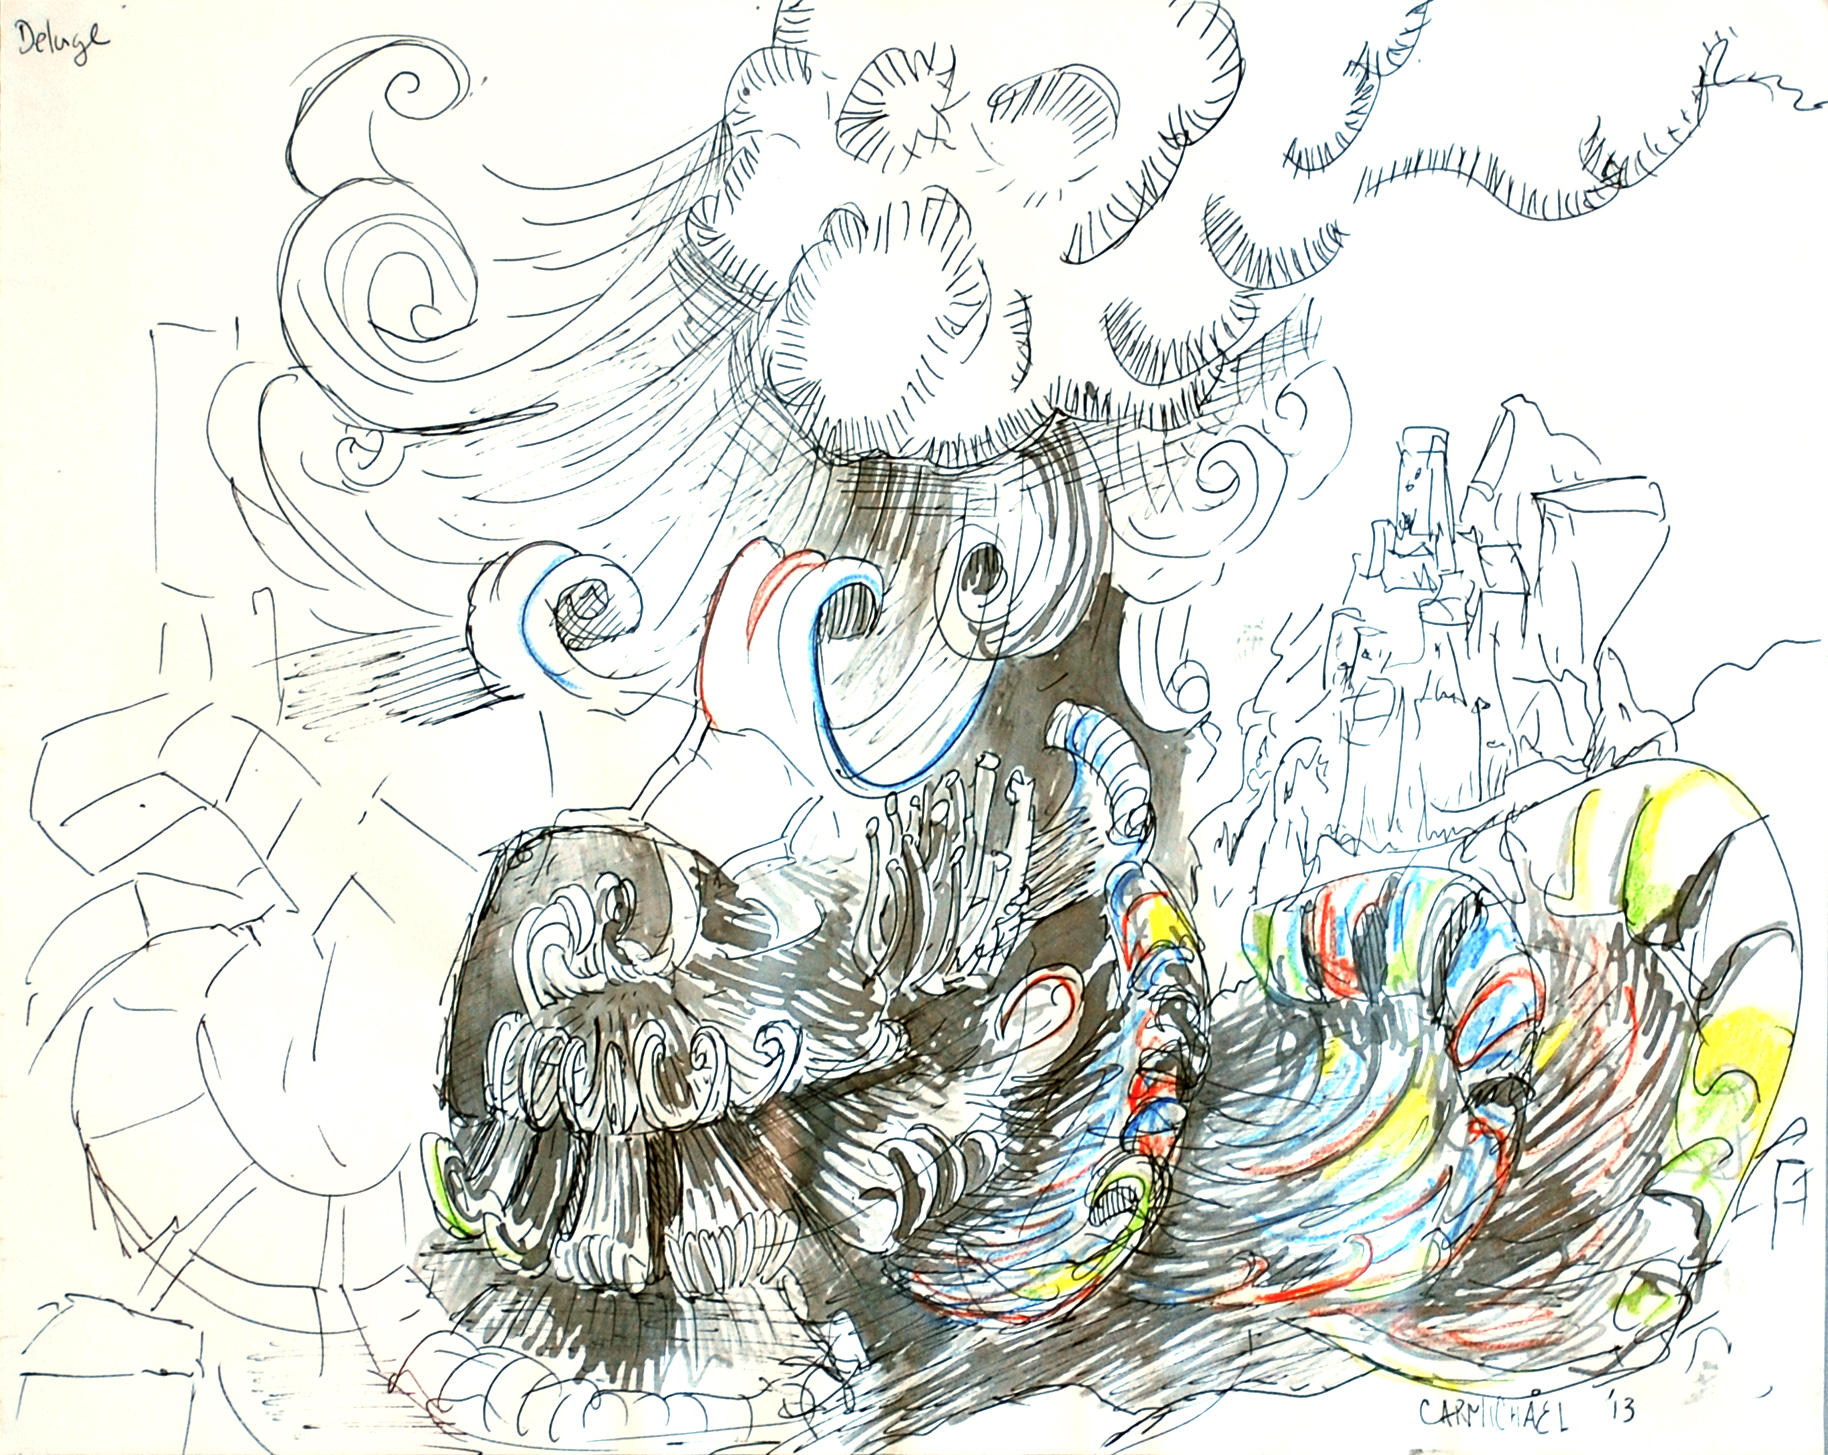 Deluge
CARMICHÅEL '13